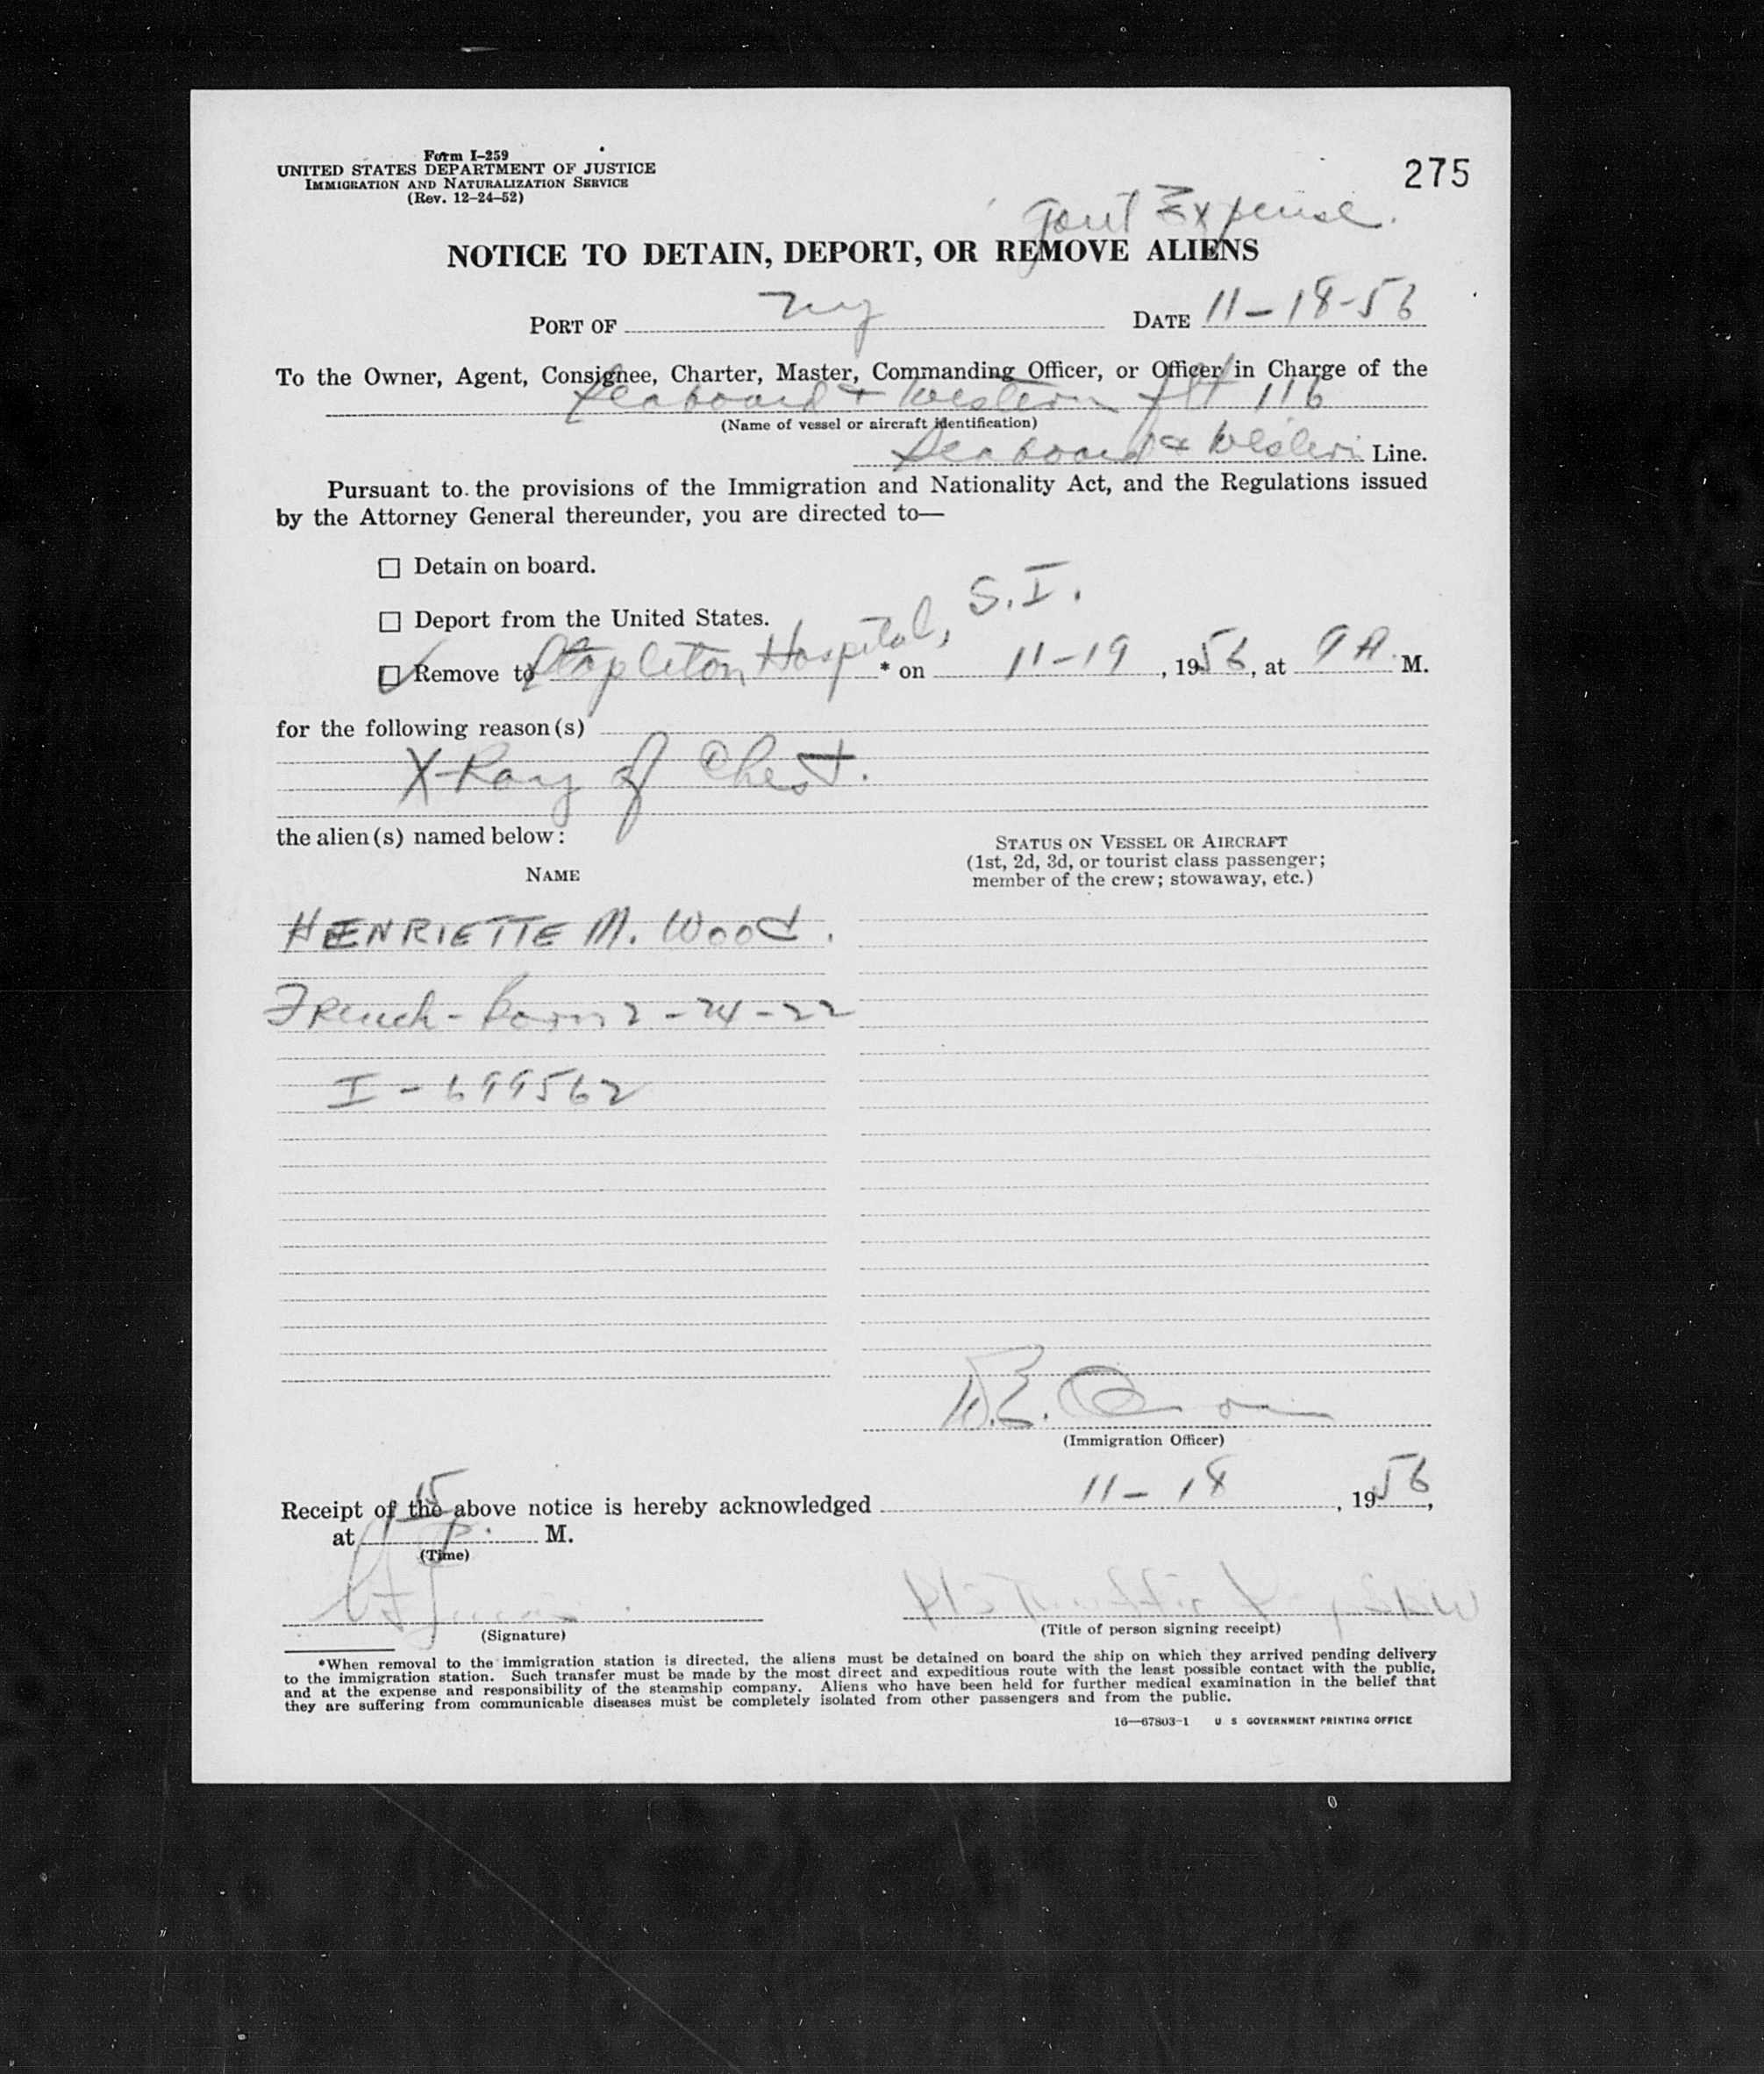 Form I-259
UNITED STATES DEPARTMENT OF JUSTICE
IMMIGRATION AND NATURALIZATION SERVICE
(Rev. 12-24-52)
275
Gout Expense.
NOTICE TO DETAIN, DEPORT, OR REMOVE ALIENS
PORT OF NY DATE 11-18-56
To the Owner, Agent, Consignee, Charter, Master, Commanding Officer, or Officer in Charge of the
Seaboard & Western flt 116
(Name of vessel or aircraft identification)
Seaboard & Western Line.
Pursuant to the provisions of the Immigration and Nationality Act, and the Regulations issued
by the Attorney General thereunder, you are directed to—
☐ Detain on board.
☐ Deport from the United States.
☑ Remove to Stapleton Hospital, S.I. * on 11-19, 1956, at 9 A. M.
for the following reason(s)
X-Ray of Chest.
the alien(s) named below:
NAME
STATUS ON VESSEL OR AIRCRAFT
(1st, 2d, 3d, or tourist class passenger;
member of the crew; stowaway, etc.)
HENRIETTE M. Wood.
French - born 2-24-22
I-699562
(Immigration Officer)
Receipt of the above notice is hereby acknowledged 11-18, 1956,
at P. M.
(Time)
(Signature)
(Title of person signing receipt)
*When removal to the immigration station is directed, the aliens must be detained on board the ship on which they arrived pending delivery
to the immigration station. Such transfer must be made by the most direct and expeditious route with the least possible contact with the public,
and at the expense and responsibility of the steamship company. Aliens who have been held for further medical examination in the belief that
they are suffering from communicable diseases must be completely isolated from other passengers and from the public.
16—67803-1 U S GOVERNMENT PRINTING OFFICE